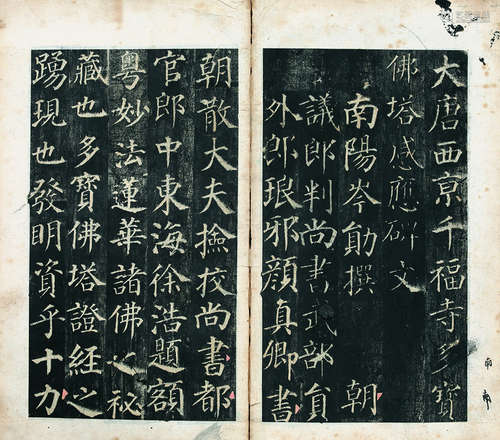 大唐西京千福寺多寶
佛塔感應碑文
南陽岑勛撰 朝
議郎判尚書武部員
外郎琅邪顏真卿書
朝散大夫撿挍尚書都
官郎中東海徐浩題額
粵妙法蓮華諸佛之祕
藏也多寶佛塔證經之
踴現也發明資乎十力